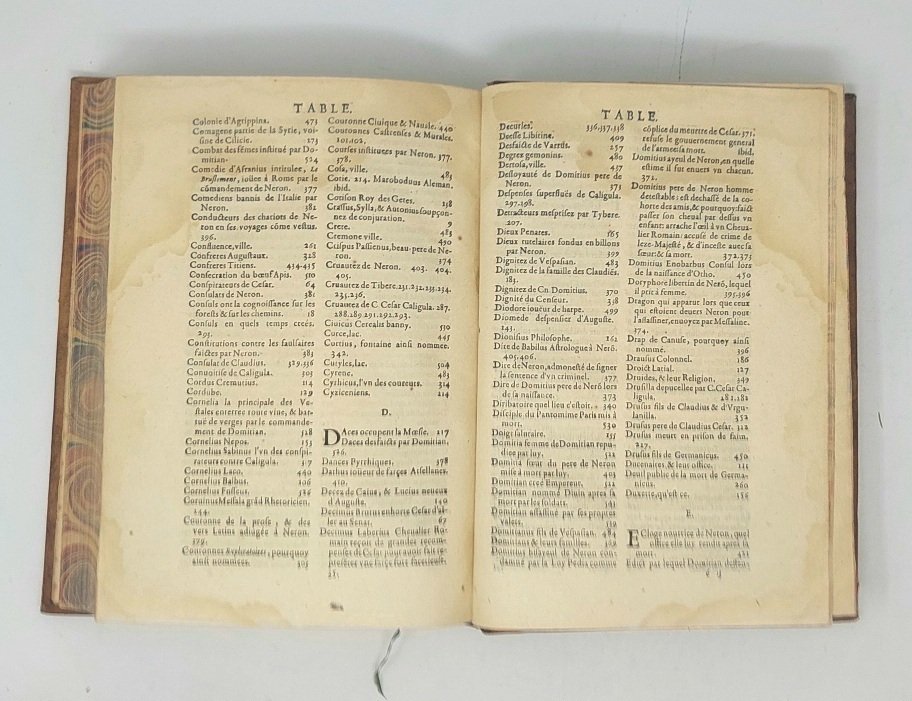 TABLE.
Colonie d'Agrippina. 473
Comagene partie de la Syrie, voi-
sine de Cilicie. 273
Combat des fémes institué par Do-
mitian. 524
Comedie d'Afranius intitulee, Le
Bruslement, iouëe à Rome par le
cómandement de Neron. 377
Comediens bannis de l'Italie par
Neron. 382
Conducteurs des chariots de Ne-
ron en ses voyages cóme vestus.
396.
Confluence, ville. 261
Confreres Augustaux. 328
Confreres Titiens. 434-435
Consecration du bœuf Apis. 510
Conspirateurs de Cesar. 64
Consulats de Neron. 381
Consuls ont la cognoissance sur les
forests & sur les chemins. 18
Consuls en quels temps creés.
295.
Constitutions contre les faulsaires
faictes par Neron. 383
Consulat de Claudius. 329.336
Conuoitise de Caligula. 303
Cordus Cremutius. 114
Cordube. 129
Cornelia la principale des Ve-
stales enterree toute viue, & bat-
tuë de verges par le commande-
ment de Domitian. 528
Cornelius Nepos. 153
Cornelius Sabinus l'vn des conspi-
rateurs contre Caligula. 317
Cornelius Laco. 440
Cornelius Balbus. 106
Cornelius Fuscus. 526
Coruinus Messala grád Rhetoricien.
244.
Couronne de la prose, & des
vers Latins adiugée à Neron.
379.
Couronnes Exploratoires, pourquoy
ainsi nommees. 305
Couronne Ciuique & Nausle. 440
Couronnes Castrenses & Murales.
101.102.
Courses instituees par Neron. 377.
378.
Cosa, ville. 483
Cotie. 214. Maroboduus Aleman.
ibid.
Cotison Roy des Getes. 138
Crassus, Sylla, & Autonius soupçon-
nez de conjuration. 9
Crete. 483
Cremone ville. 450
Crispus Passienus, beau-pere de Ne-
ron. 374
Cruautez de Neron. 403. 404.
405.
Cruautez de Tibere. 231.232.233.234.
235.236.
Cruautez de C. Cesar Caligula. 287.
288.289.291.292.293.
Ciuicus Cerealis banny. 530
Curce, lac. 445
Curtius, fontaine ainsi nommee.
342.
Cutyles, lac. 504
Cyrene. 483
Cyrhicus, l'vn des coureurs. 314
Cyziceniens. 224
D.
DAces occupent la Mœsie. 217
Daces desfaicts par Domitian.
526.
Dances Pyrrhiques. 378
Dathus ioüeur de farçes Atellanes.
410.
Decez de Caius, & Lucius neueux
d'Auguste. 140
Decimus Brutus enhorte Cesar d'al-
ler au Senat. 67
Decimus Laberius Cheualier Ro-
main reçoit de grandes recom-
penses de Cesar pour auoir fait re-
presenter vne farçe fort facetieuse.
33.
TABLE.
Decuries. 336.337.338
Deesse Libitine. 409
Desfaicte de Varrus. 257
Degrez gemonins. 480
Dertosa, ville. 437
Desloyauté de Domitius pere de
Neron. 373
Despenses superfluës de Caligula.
297.298.
Detracteurs mesprisez par Tybere.
207.
Dieux Penates. 565
Dieux tutelaires fondus en billons
par Neron. 399
Dignitez de Vespasian. 483
Dignitez de la famille des Claudiés.
183.
Dignitez de Cn. Domitius. 370
Dignité du Censeur. 338
Diodore ioueur de harpe. 499
Diomede despensier d'Auguste.
143.
Dionisius Philosophe. 162
Dire de Babilus Astrologue à Neró.
405.406.
Dire de Neron, admonesté de signer
la sentence d'vn criminel. 377
Dire de Domitius pere de Neró lors
de sa naissance. 373
Diribatoire quel lieu c'estoit. 340
Disciple du Pantomime Paris mis à
mort. 530
Doigt salutaire. 155
Domitia femme de Domitian repu-
diee par luy. 522
Domitia sœur du pere de Neron
mise à mort par luy. 403
Domitian creé Empereur. 522
Domitian nommé Diuin apres sa
mort par les soldats. 541
Domitian assassiné par ses propres
valets. 539
Domitians fils de Vespasian. 484
Domitians & leurs familles. 369
Domitius bisayeul de Neron con-
damné par la Loy Pedia comme
cóplice du meurtre de Cesar. 371.
refuse le gouuernement general
de l'armee: sa mort. ibid.
Domitius ayeul de Neron, en quelle
estime il fut enuers vn chacun.
372.
Domitius pere de Neron homme
detestable: est deschassé de la co-
horte des amis, & pourquoy: faict
passer son cheual par dessus vn
enfant: arrache l'œil à vn Cheua-
lier Romain: accusé de crime de
leze-Majesté, & d'inceste auec sa
sœur: & sa mort. 372.373
Domitius Enobarbus Consul lors
de la naissance d'Otho. 450
Doryphore libertin de Neró, lequel
il prit à femme. 395.396
Dragon qui apparut lors que ceux
qui estoient deuers Neron pour
l'assassiner, enuoyez par Messaline.
374.
Drap de Canuse, pourquoy ainsi
nommé. 396
Drausus Colonnel. 186
Droict Latial. 127
Druides, & leur Religion. 349
Drusilla depucelee par C. Cesar Ca-
ligula. 281.282
Drusus fils de Claudius & d'Vrgu-
lanilla. 352
Drusus pere de Claudius Cesar. 312
Drusus meurt en prison de faim.
227.
Drusus fils de Germanicus. 450
Ducenaires, & leur office. 111
Deuil public de la mort de Germa-
nicus. 260
Duxerte, qu'est ce. 156
E.
ECloge nourrice de Neron, quel
office elle luy rendit apres sa
mort. 431
Edict par lequel Domitian deffen-
e ij